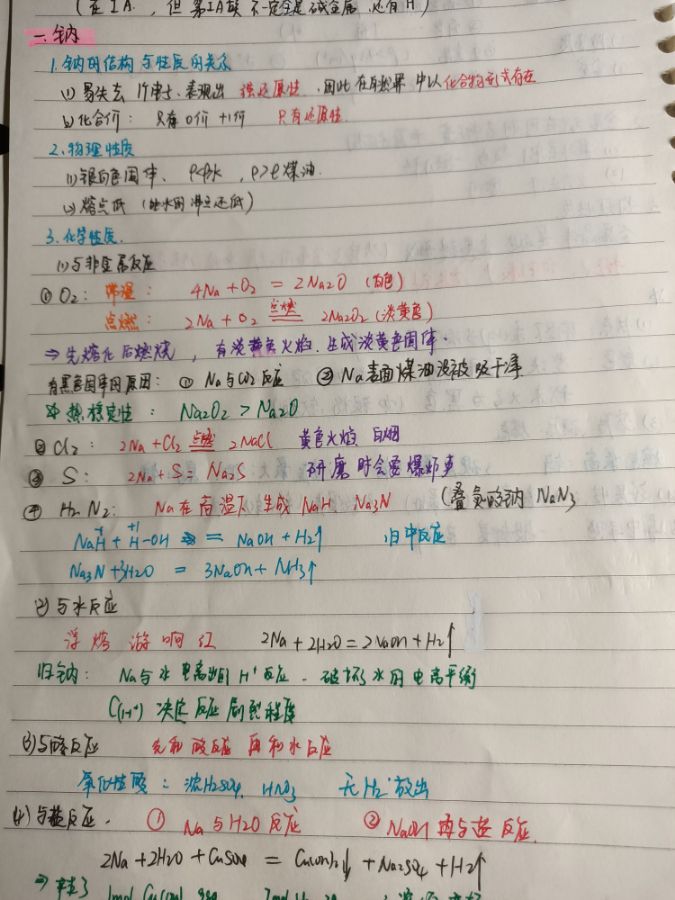 (在IA，但第IA族不一定全是碱金属，还有H)
一.钠
1.钠的结构与性质的关系
(1)易失去1个电子，表现出强还原性，因此在自然界中以化合物形式存在
(2)化合价：只有0价 +1价 只有还原性
2.物理性质
(1)银白色固体、ρ<ρ水，ρ>ρ煤油.
(2)熔点低（比水的沸点还低）
3.化学性质.
(1)与非金属反应
①O₂：常温：4Na+O₂=2Na₂O（白色）
点燃：2Na+O₂ 点燃 Na₂O₂（淡黄色）
⇒先熔化后燃烧，有淡黄色火焰，生成淡黄色固体.
有黑色固体的原因：① Na与CO₂反应 ② Na表面煤油没被吸干净
热稳定性：Na₂O₂>Na₂O
②Cl₂：2Na+Cl₂ 点燃 2NaCl 黄色火焰 白烟
③S：2Na+S=Na₂S 研磨时会要爆炸声
④H₂ N₂：Na在高温下生成NaH Na₃N （叠氮酸钠 NaN₃
NaH+H-OH == NaOH+H₂↑ 归中反应
Na₃N+3H₂O = 3NaOH+NH₃↑
(2)与水反应
浮熔游响红 2Na+2H₂O=2NaOH+H₂↑
归纳：Na与水电离出的H⁺反应，破坏水的电离平衡
C(H⁺)决定反应剧烈程度
(3)与酸反应 先和酸反应再和水反应
氧化性酸：浓H₂SO₄，HNO₃ 无H₂放出
(4)与盐反应. ① Na与H₂O反应 ② NaOH再与盐反应.
2Na+2H₂O+CuSO₄=Cu(OH)₂↓+Na₂SO₄+H₂↑